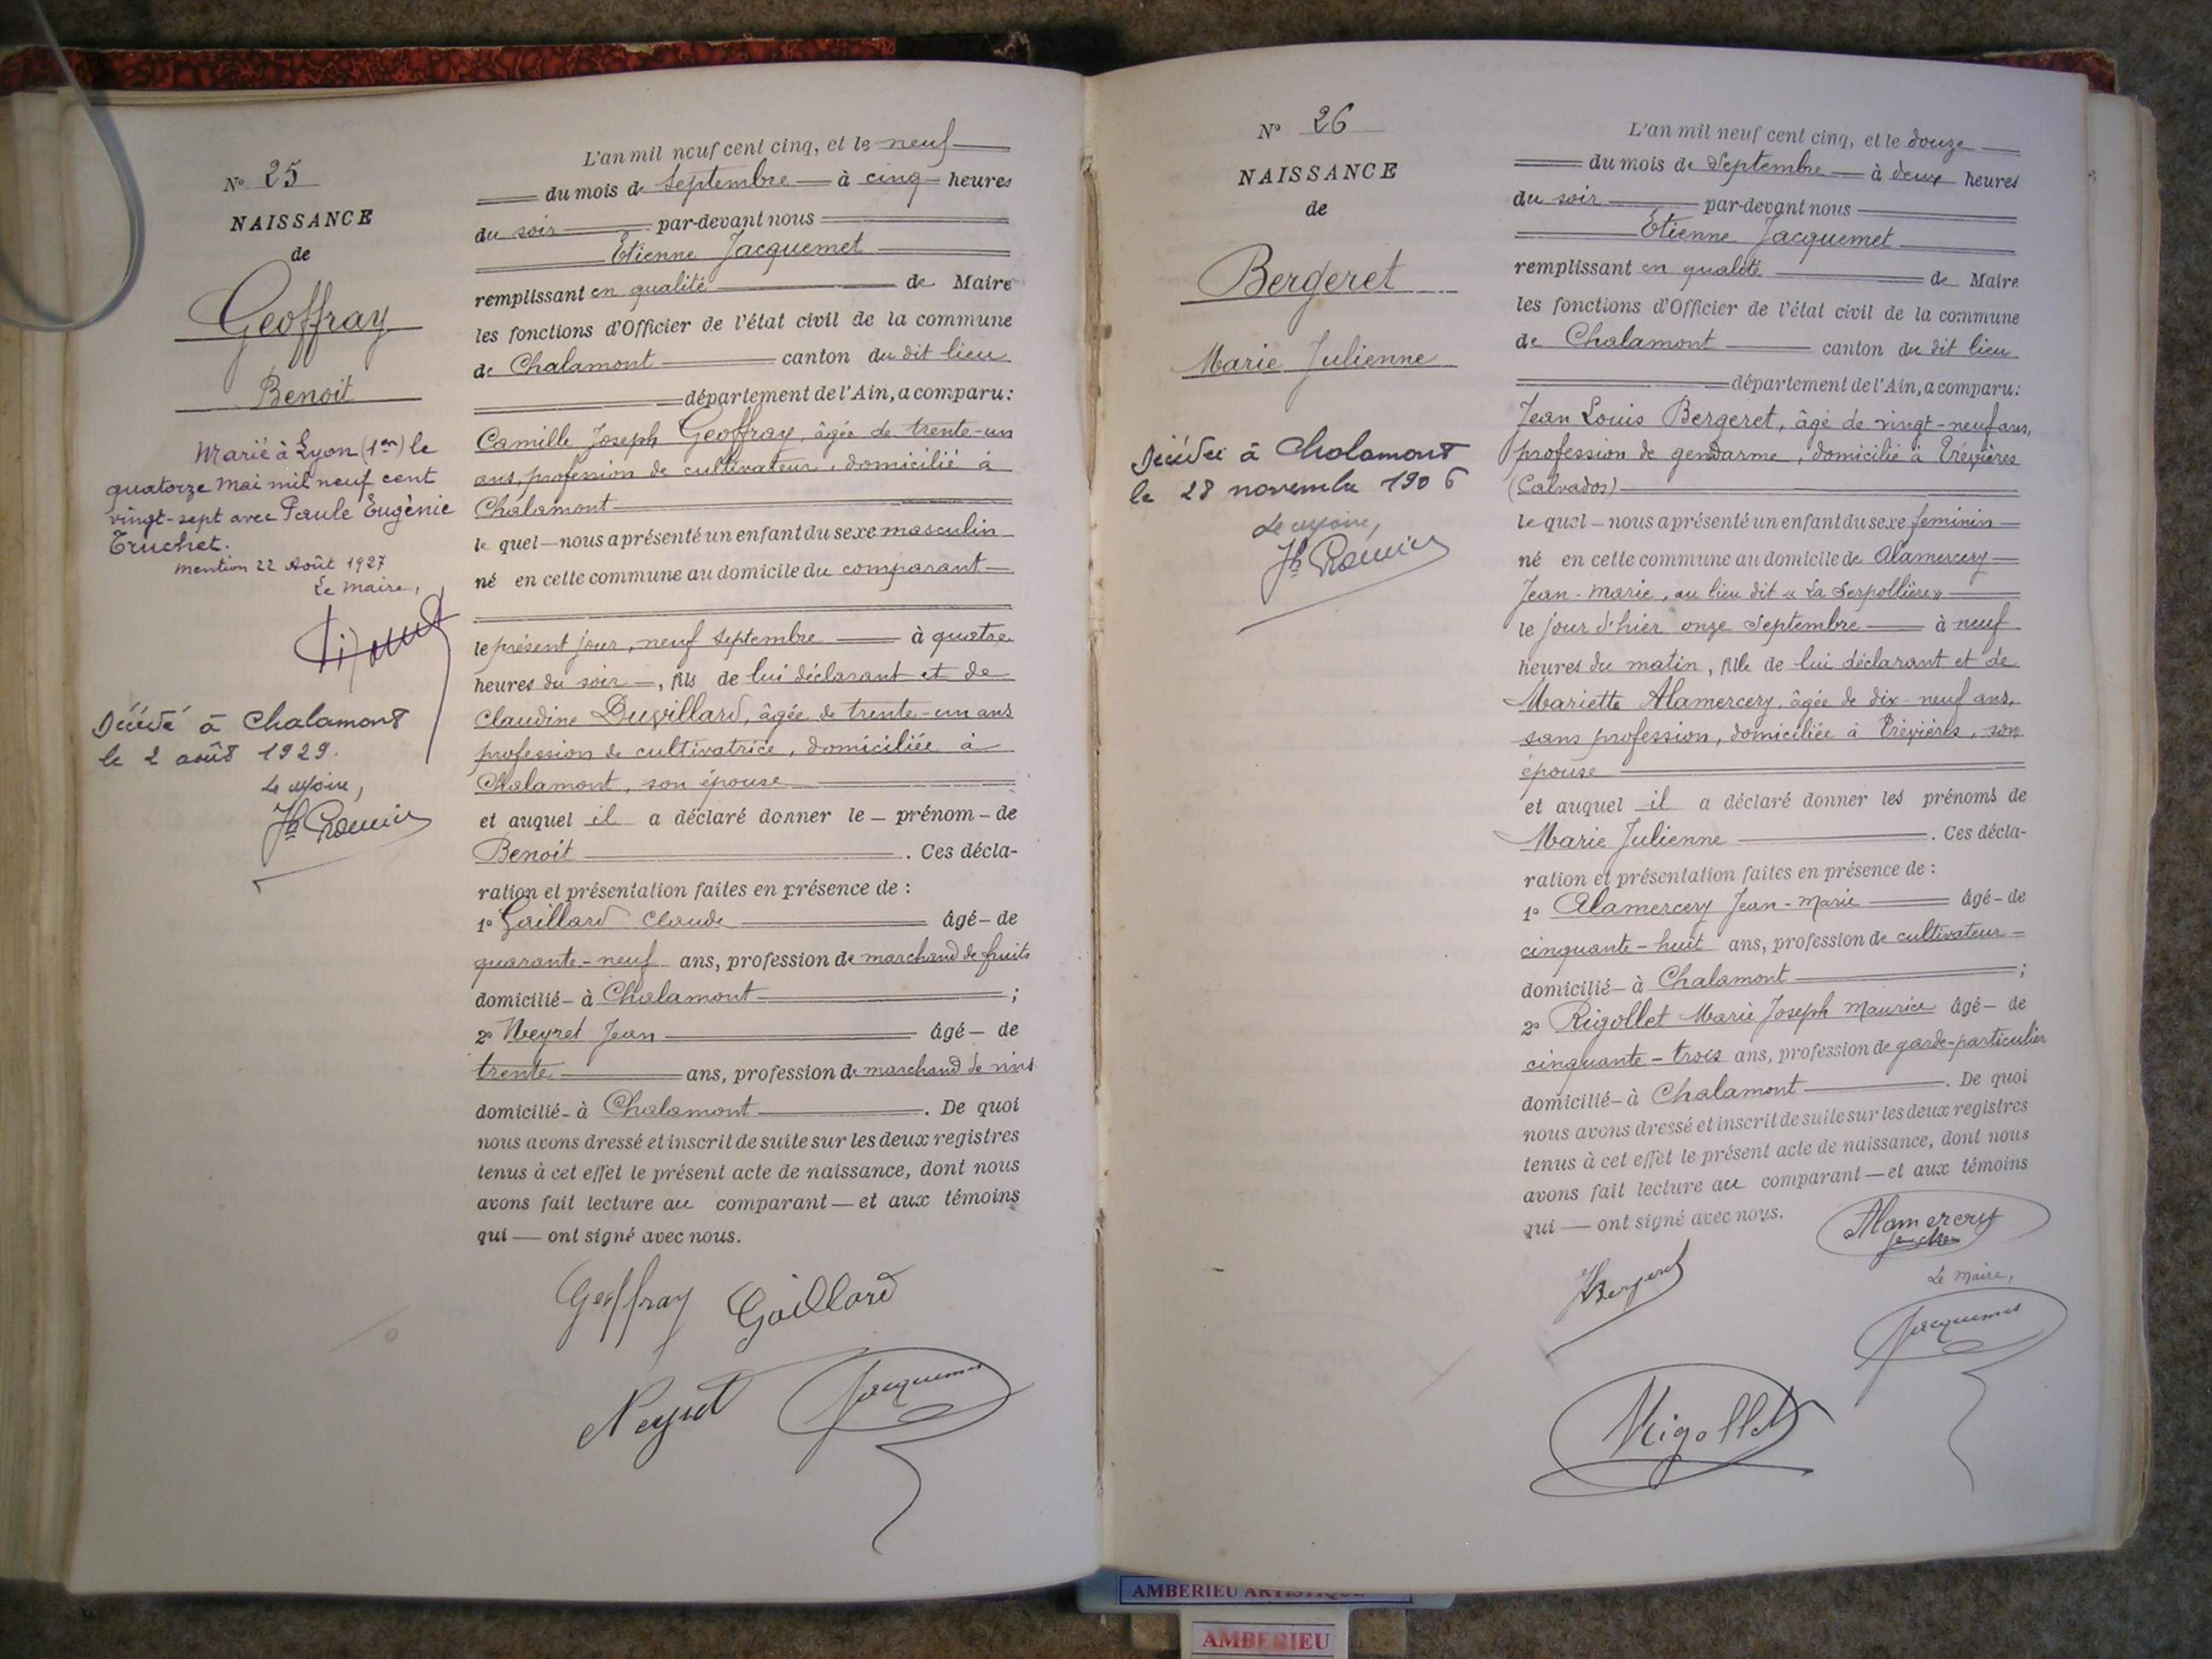 N° 25
NAISSANCE
de
Geoffray
Benoit
Marié à Lyon (1er) le
quatorze Mai mil neuf cent
vingt-sept avec Paule Eugènie
Truchet.
Mention 22 Août 1927
Le Maire,
Décédé à Chalamont
le 2 août 1929.
Le Maire,
L'an mil neuf cent cinq, et le neuf
du mois de Septembre à cinq heures
du soir par-devant nous
Etienne Jacquemet
remplissant en qualité de Maire
les fonctions d'Officier de l'état civil de la commune
de Chalamont canton du dit lieu
département de l'Ain, a comparu:
Camille Joseph Geoffray, âgée de trente-un
ans, profession de cultivateur, domicilié à
Chalamont
le quel nous a présenté un enfant du sexe masculin
né en cette commune au domicile du comparant
le présent jour, neuf septembre à quatre
heures du soir, fils de lui déclarant et de
Claudine Duvillard, âgée de trente-un ans
profession de cultivatrice, domiciliée à
Chalamont, son épouse
et auquel il a déclaré donner le prénom de
Benoit. Ces décla-
ration et présentation faites en présence de :
1° Gaillard Claude âgé de
quarante-neuf ans, profession de marchand de fruits
domicilié à Chalamont ;
2° Neyret Jean âgé de
trente ans, profession de marchand de vins
domicilié à Chalamont. De quoi
nous avons dressé et inscrit de suite sur les deux registres
tenus à cet effet le présent acte de naissance, dont nous
avons fait lecture au comparant et aux témoins
qui ont signé avec nous.
Geoffray Gaillard
Neyret Jacquemet
N° 26
NAISSANCE
de
Bergeret
Marie Julienne
Décédée à Chalamont
le 28 novembre 1906
Le Maire,
L'an mil neuf cent cinq, et le douze
du mois de Septembre à deux heures
du soir par-devant nous
Etienne Jacquemet
remplissant en qualité de Maire
les fonctions d'Officier de l'état civil de la commune
de Chalamont canton du dit lieu
département de l'Ain, a comparu:
Jean Louis Bergeret, âgé de vingt-neuf ans,
profession de gendarme, domicilié à Trévières
(Calvados)
le quel nous a présenté un enfant du sexe feminin
né en cette commune au domicile de Alamercery
Jean-Marie, au lieu dit « La Serpollière »
le jour d'hier onze Septembre à neuf
heures du matin, fille de lui déclarant et de
Mariette Alamercery, âgée de dix-neuf ans,
sans profession, domiciliée à Trévières, son
épouse
et auquel il a déclaré donner les prénoms de
Marie Julienne. Ces décla-
ration et présentation faites en présence de :
1° Alamercery Jean-Marie âgé de
cinquante-huit ans, profession de cultivateur
domicilié à Chalamont ;
2° Rigollet Marie Joseph Maurice âgé de
cinquante-trois ans, profession de garde-particulier
domicilié à Chalamont. De quoi
nous avons dressé et inscrit de suite sur les deux registres
tenus à cet effet le présent acte de naissance, dont nous
avons fait lecture au comparant et aux témoins
qui ont signé avec nous.
Alamercery
Bergeret
Le Maire,
Jacquemet
Rigollet
AMBERIEU ARTISTIQUE
AMBERIEU